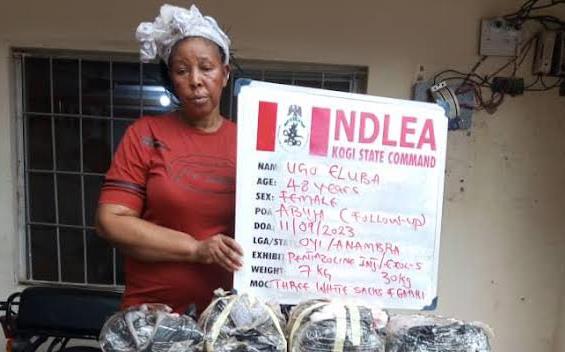 NDLEA
KOGI STATE COMMAND
NAM UGO ELUBA
AGE: 48 years
SEX: FEMALE
POA ABUJA (Follow-up)
DOA: 11/09/2023
LGA/STAT OYI/ANAMBRA
EXHIBIT PENTAZOCINE INJ/EXOL-5
WEIGHT 7kg 30kg
MOC THREE WHITE SACKS OF GARRI